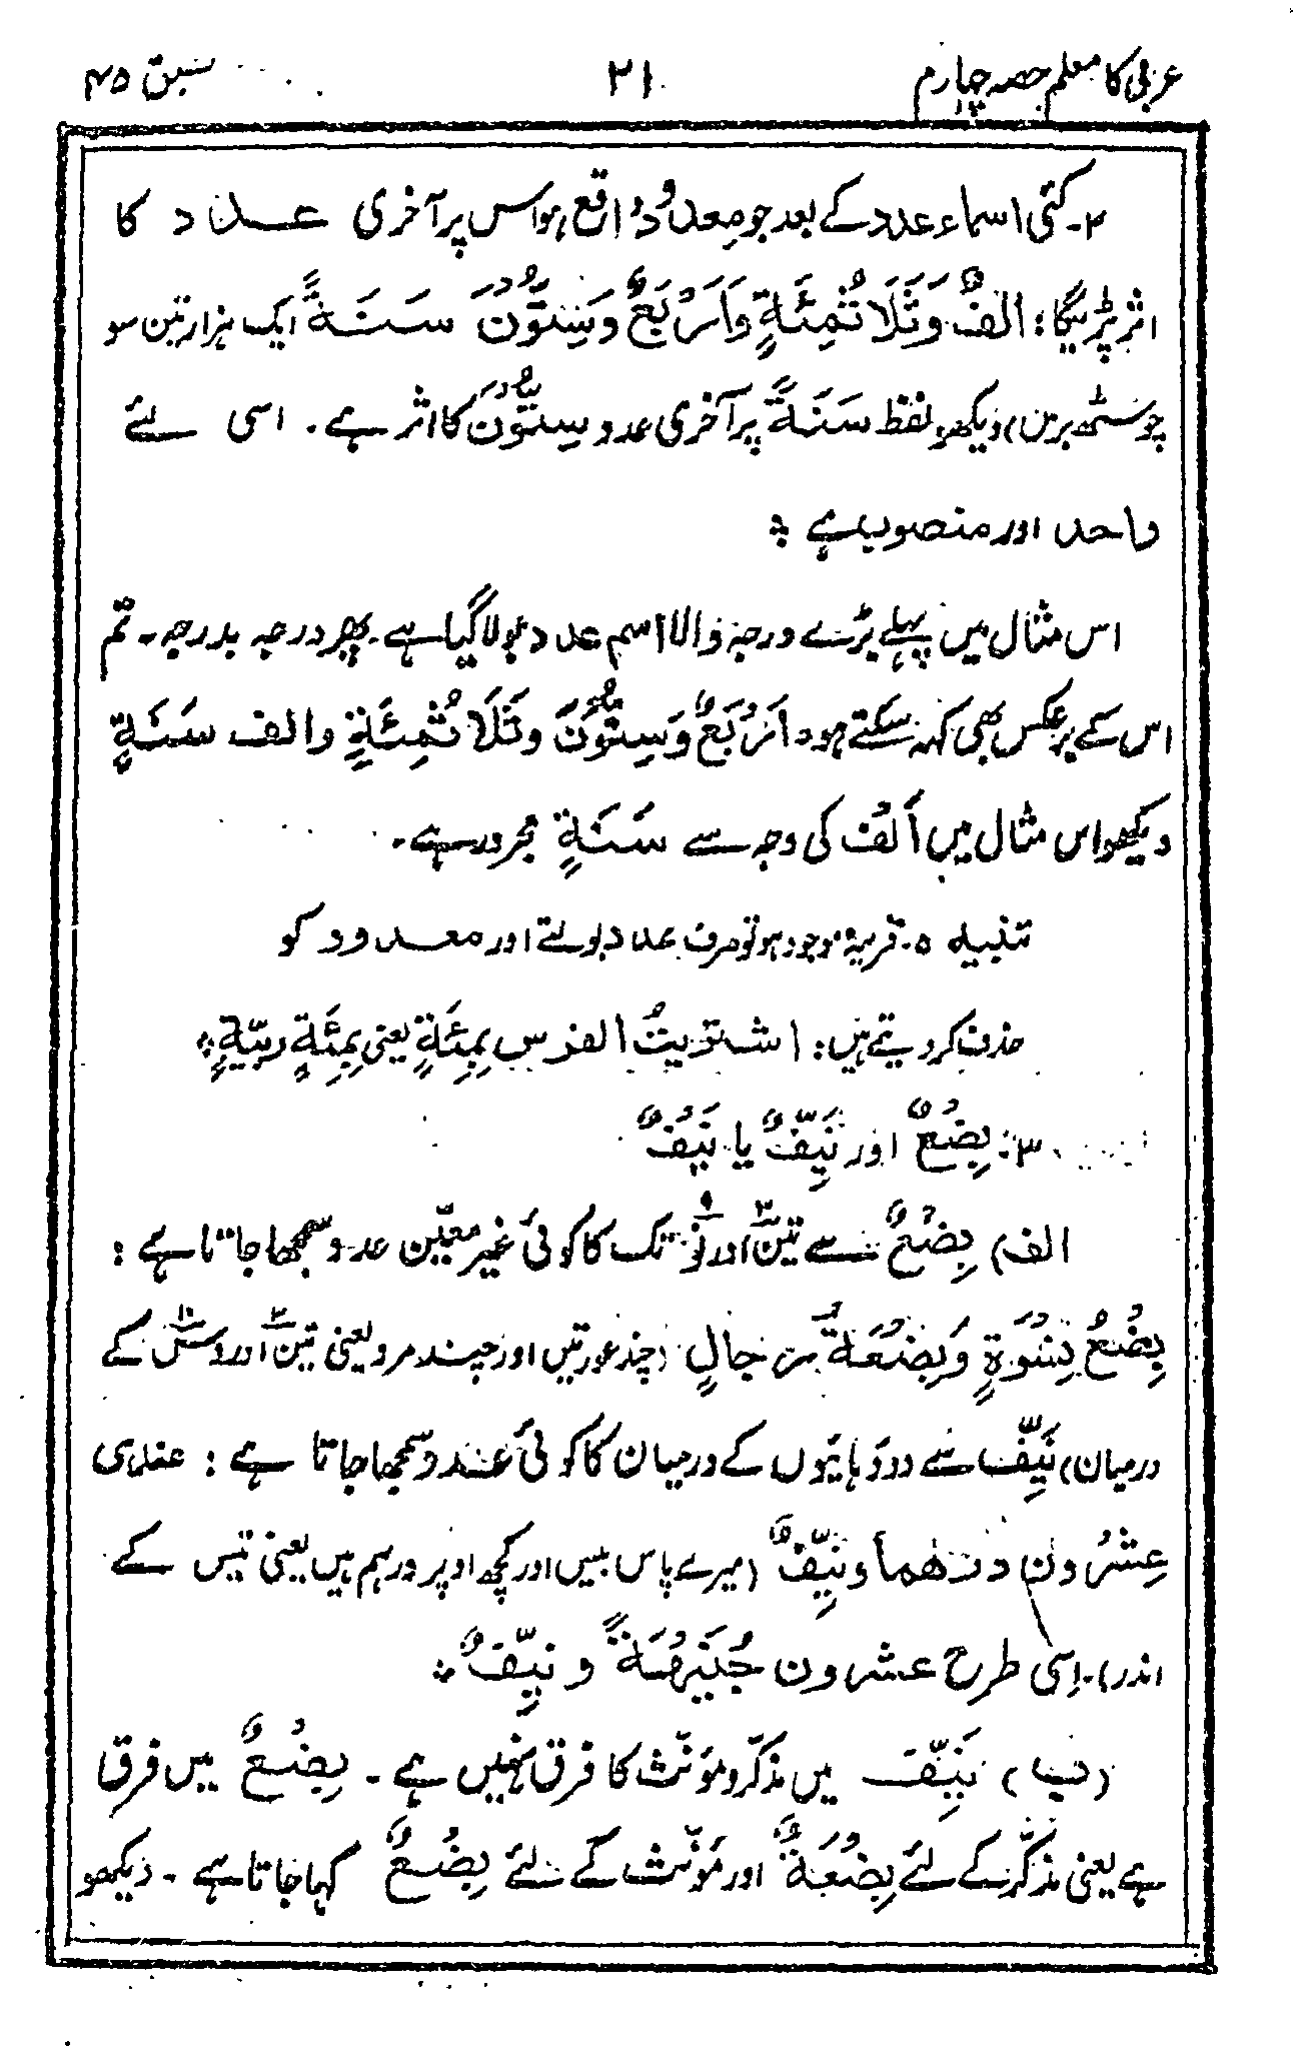 عربی کا معلم حصہ چہارم ۲۱ سبق ۴۵
۲۔ کئی اسماء عدد کے بعد جو معدود واقع ہو اس پر آخری عدد کا
اثر پڑیگا: الفٌ وَثَلَاثُمِئَةٍ وَاَرْبَعٌ وَسِتُّوْنَ سَنَةً (ایک ہزار تین سو
چوسٹھ برس) دیکھو لفظ سَنَةً پر آخری عدد سِتُّوْنَ کا اثر ہے۔ اسی لئے
واحد اور منصوب ہے ؞
اس مثال میں پہلے بڑے درجہ والا اسم عدد بولا گیا ہے۔ پھر درجہ بدرجہ۔ تم
اس کے برعکس بھی کہہ سکتے ہو: اَرْبَعٌ وَسِتُّوْنَ وثَلَاثُمِئَةٍ والف سَنَةٍ
دیکھو اس مثال میں اَلْف کی وجہ سے سَنَةٍ مجرور ہے۔
تنبیہ ۵۔ قرینہ موجود ہو تو صرف عدد بولتے اور معدود کو
حذف کر دیتے ہیں: اشتریتُ الفرس بِمِئَةٍ یعنی بِمِئَةِ ربیّةٍ ؞
۳: بِضْعٌ اور نَیِّفٌ یا نَیْفٌ
الف) بِضْعٌ سے تین۳ اور نو۹ تک کا کوئی غیر معیّن عدد سمجھا جاتا ہے :
بِضْعُ نِسْوَةٍ وَبِضْعَةُ رِجالٍ (چند عورتیں اور چند مرد یعنی تین۳ اور دس۱۰ کے
درمیان) نَیِّف سے دو دہائیوں کے درمیان کا کوئی عدد سمجھا جاتا ہے : عندی
عِشْرُونَ درھماً ونَیِّفٌ (میرے پاس بیس اور کچھ اوپر درہم ہیں یعنی تیس کے
اندر)۔ اِسی طرح عشرون جُنَیْهَةً و نَیِّفٌ ؞
(ب) نَیِّف میں مذکّر و مؤنّث کا فرق نہیں ہے۔ بِضْعٌ میں فرق
ہے یعنی مذکّر کے لئے بِضْعَةٌ اور مؤنّث کے لئے بِضْعٌ کہا جاتا ہے۔ دیکھو